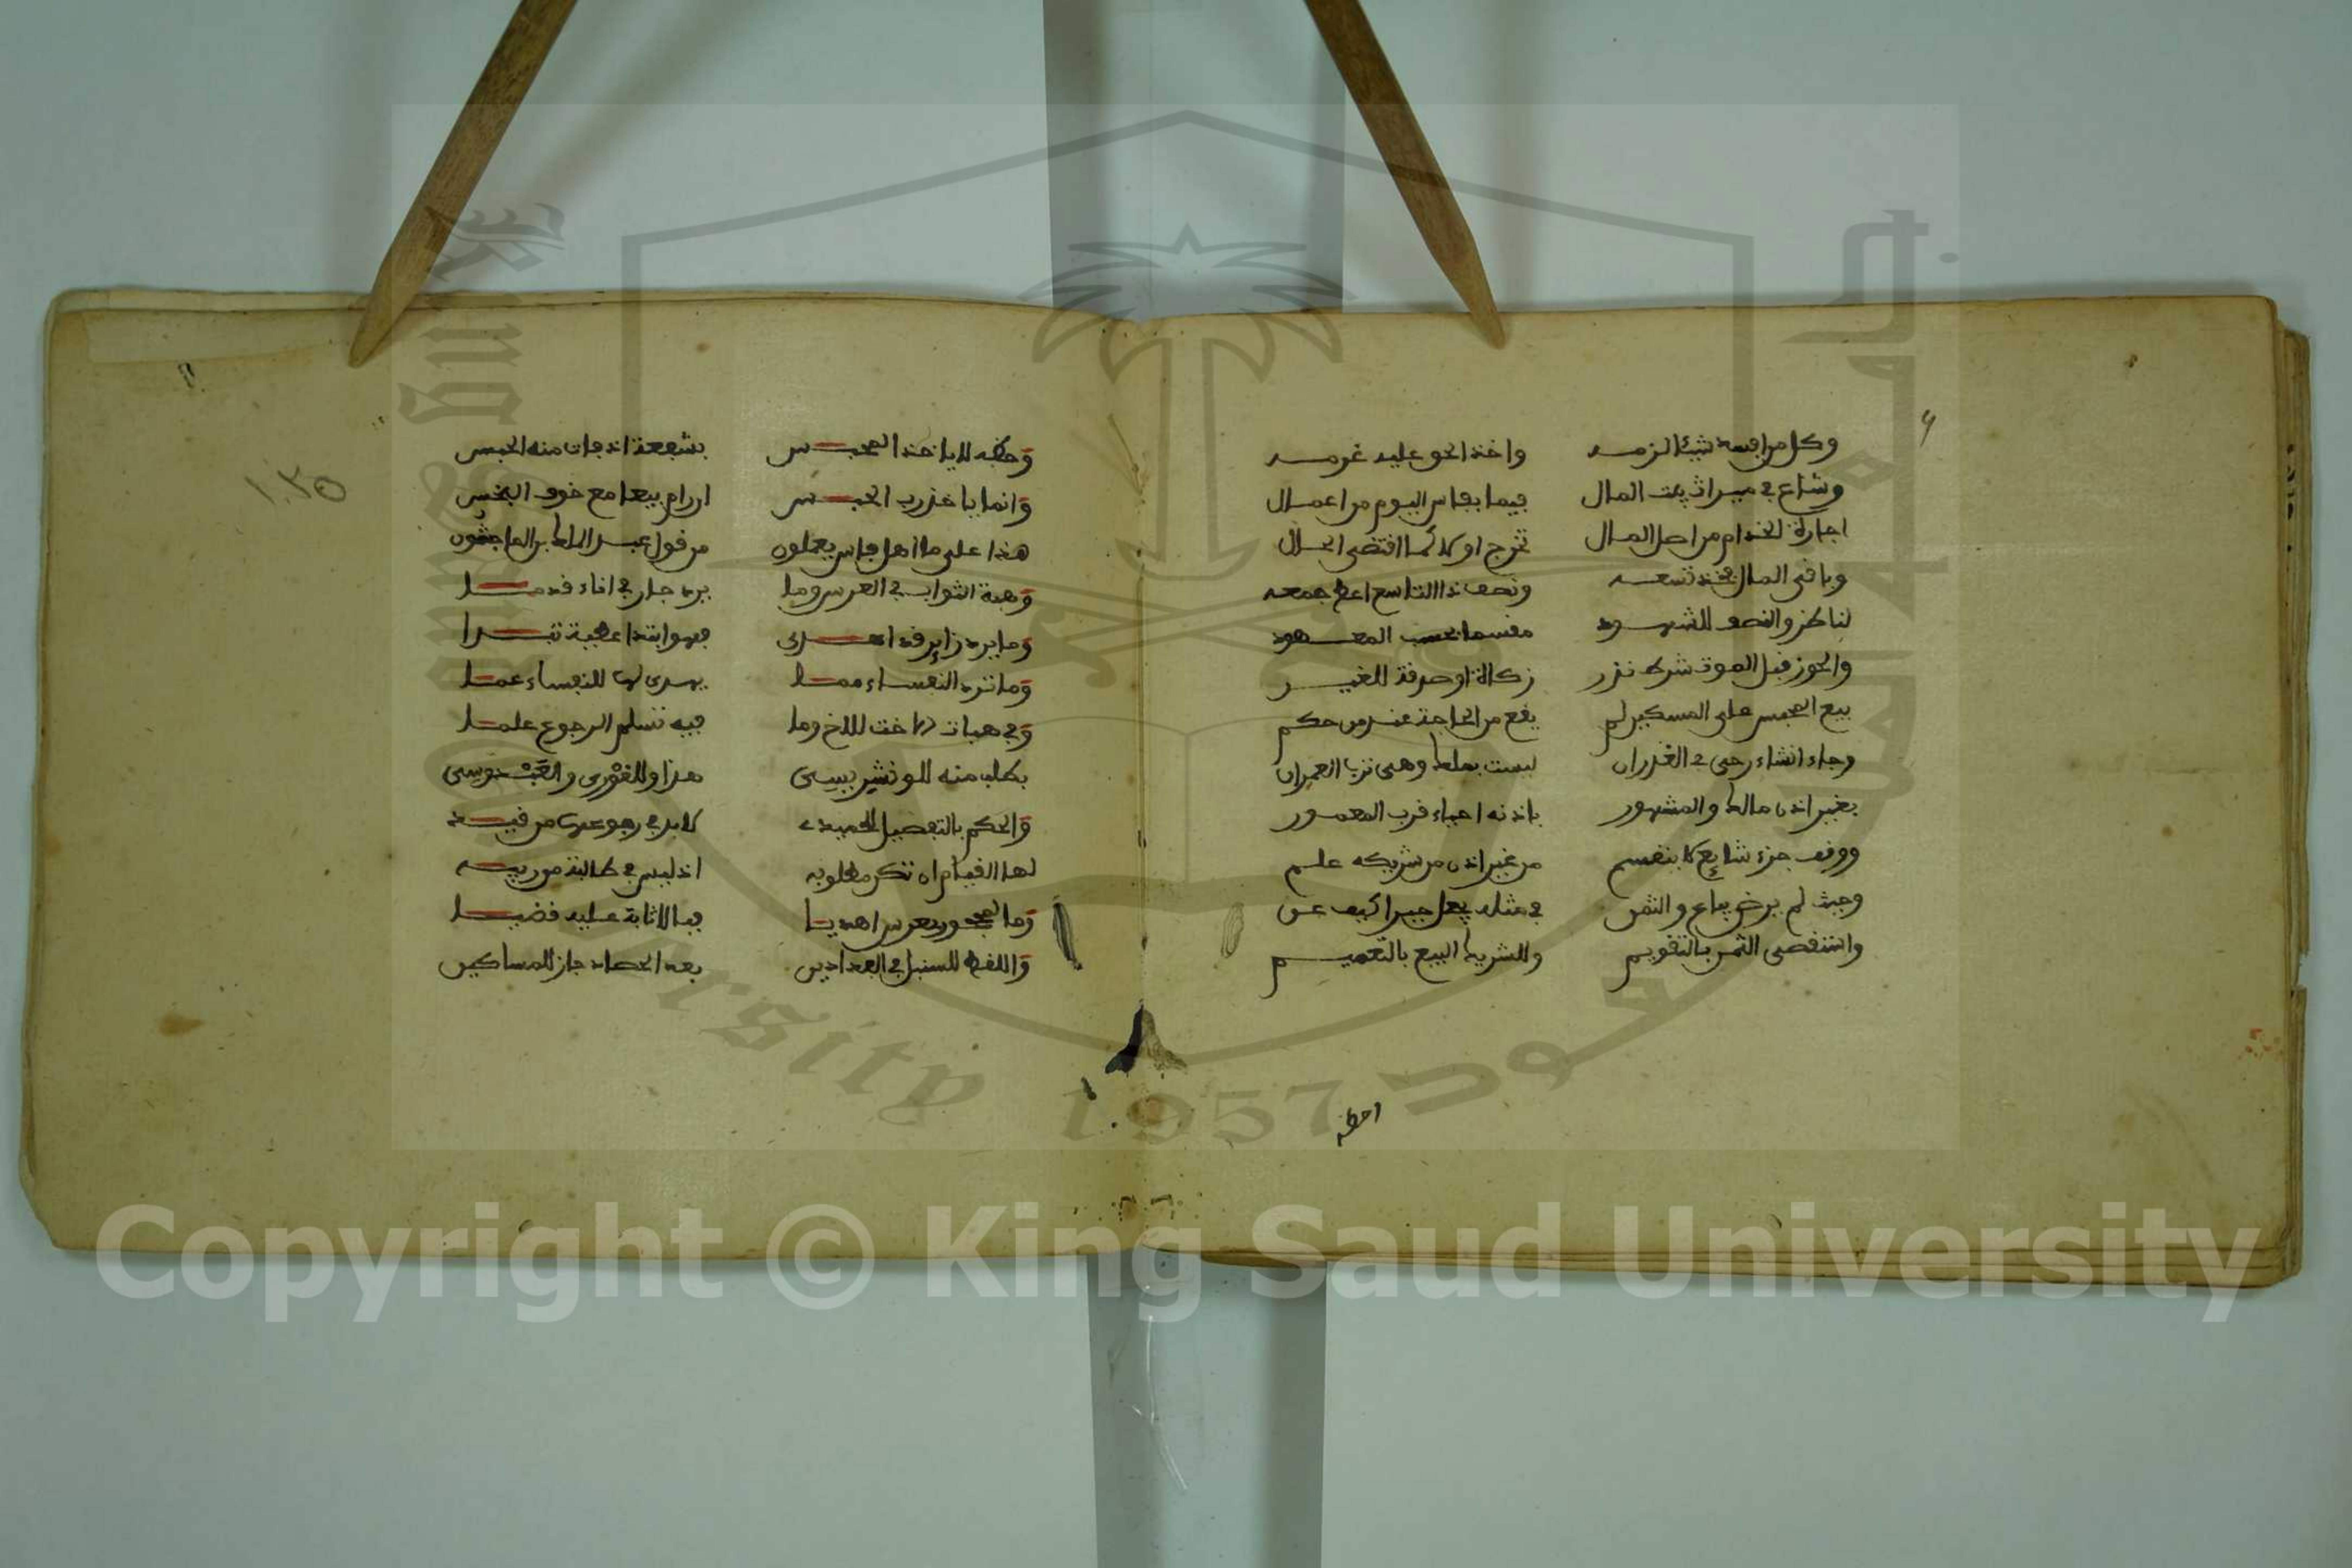 وكل من افسد شيئا لزمه واخذ الحق عليه غرمه
وشاع في ميراث بيت المال فيما بفاس اليوم من اعمال
اجارة الخدام من اصل المال تخرج اولا كما اقتضى الحال
وباقي المال فخذ تسعه ونصف ذا التاسع اعط جمعه
لناظر والنصف للشهود مقسما بحسب المعهود
والحوز قبل الموت شرط نذر زكاة او صدقة للغير
بيع المحبس على المسكين لم يقع من الحاجة عند من حكم
وجاء انشاء رحى في الغدران ليست بملك وهي قرب العمران
بغير اذن مالك والمشهور باذنه احياء قرب المعمور
ووقف جزء شايع لا ينقسم من غير اذن من شريكه علم
وحيث لم يرض يباع والثمن في مثله يجعل جبرا كيف عن
واستقصي الثمن بالتقويم وللشريك البيع بالتعميم
وحظه لا ياخذ المحبس بشفعة اذ فات منه الحبس
وانما ياخذ رب الحبس ان رام بيعا مع خوف البخس
هذا على ما اهل فاس يعملون من قول عبد الملك بن الماجشون
وهبة الثواب في العرس وما يرد جار في اناء قدما
وما يرد زاير قد اهدى فهو ابتدا عطية تبدا
وما ترد النفساء مما يهدى لها للنفساء عما
وفي هبات الاخت للاخ وما فيه تسلم الرجوع علما
بطلب منه للونشريسي هذا وللقوري والعبدوسي
والحكم بالتفصيل للحميدي لابد في رجوعها من قيد
لها القيام ان تكن مطلوبه اذ ليس في طالبة من ريبه
وما لمحجور بعرس اهديا فبالاثابة عليه قضيا
واللقط للسنبل في الفدادين بعد الحصاد جاز للمساكين
وحظه
١٠٣٥
Copyright © King Saud University
1957